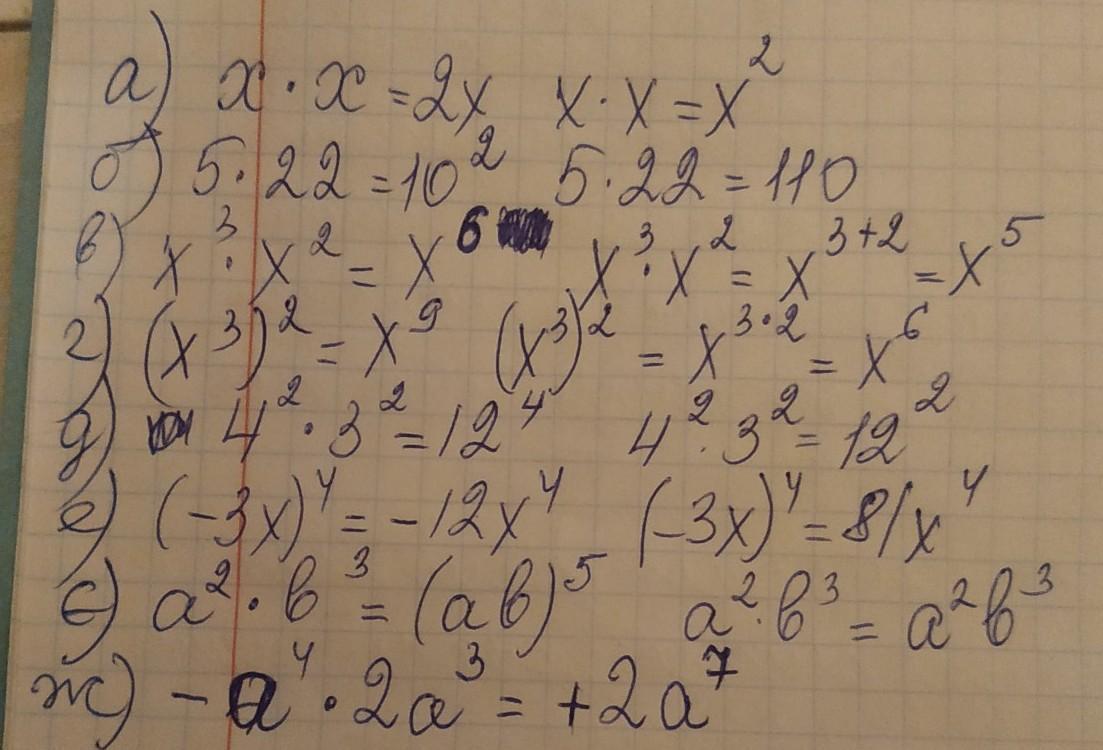 а) x · x = 2x x · x = x²
б) 5 · 22 = 10² 5 · 22 = 110
в) x³ · x² = x⁶ x³ · x² = x³⁺² = x⁵
г) (x³)² = x⁹ (x³)² = x³˙² = x⁶
д) 4² · 3² = 12⁴ 4² · 3² = 12²
е) (-3x)⁴ = -12x⁴ (-3x)⁴ = 81x⁴
є) a² · b³ = (ab)⁵ a² · b³ = a²b³
ж) - a⁴ · 2a³ = +2a⁷